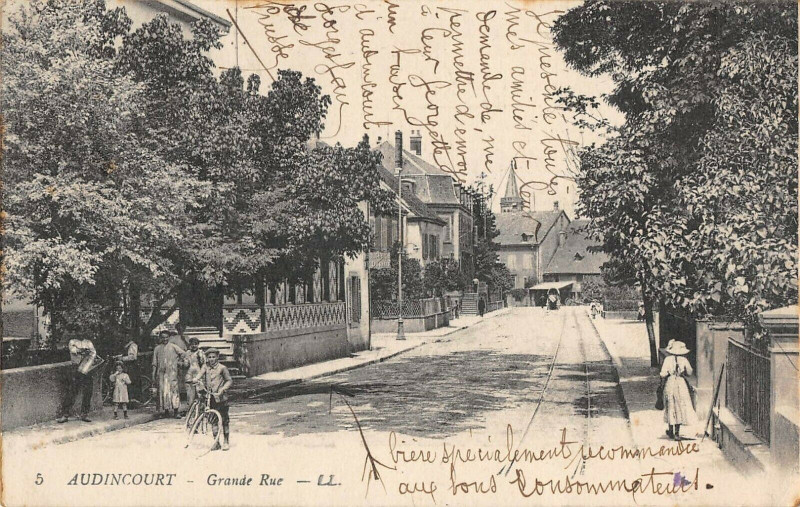 Je présente toutes
mes amitiés et leur
demande de, me
permettre d'envoyer
à leur Georgette
un baiser
d'audincourt
bière spécialement recommandée
aux bons Consommateurs.
5 AUDINCOURT - Grande Rue - LL.